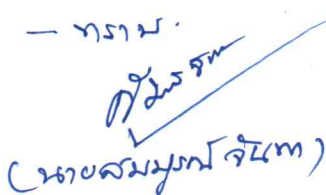 - ทราบ.
(นายสมบูรณ์ จันทา)